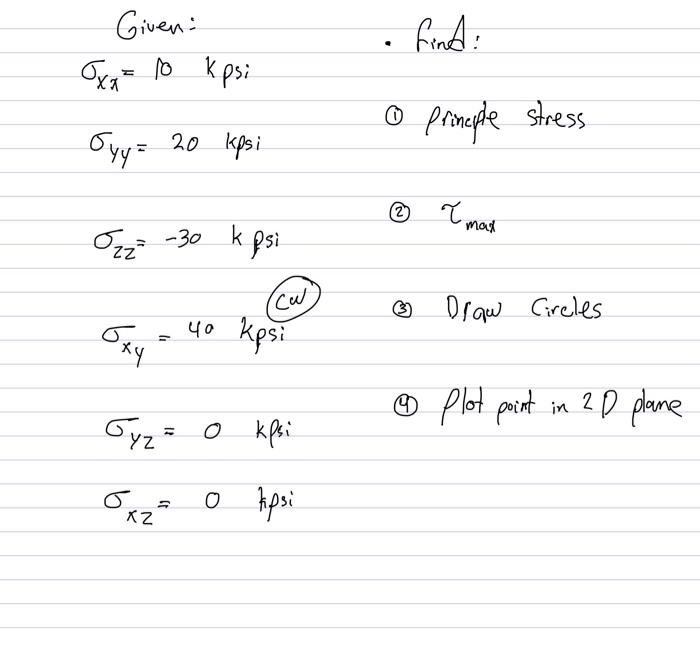 Given:
σxx = 10 kpsi
σyy = 20 kpsi
σzz = -30 kpsi
σxy = 40 kpsi (cw)
σyz = 0 kpsi
σxz = 0 kpsi
• find:
① principle stress
② τmax
③ Draw Circles
④ Plot point in 2D plane